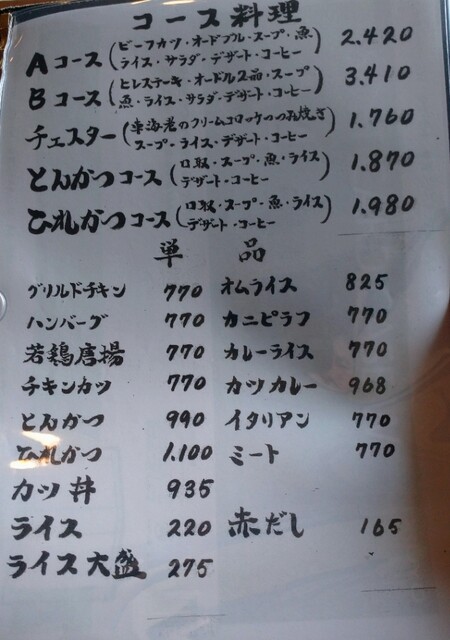 コース料理
Aコース(ビーフカツ・オードブル・スープ・魚 2.420
ライス・サラダ・デザート・コーヒー)
Bコース(ヒレステーキ・オードル2品・スープ 3.410
魚・ライス・サラダ・デザート・コーヒー)
チェスター(車海老のクリームコロッケのつぼ焼き 1.760
スープ・ライス・デザート・コーヒー)
とんかつコース(口取・スープ・魚・ライス 1.870
デザート・コーヒー)
ひれかつコース(口取・スープ・魚・ライス 1.980
デザート・コーヒー)
単品
グリルドチキン 770 オムライス 825
ハンバーグ 770 カニピラフ 770
若鶏唐揚 770 カレーライス 770
チキンカツ 770 カツカレー 968
とんかつ 990 イタリアン 770
ひれかつ 1.100 ミート 770
カツ丼 935
ライス 220 赤だし 165
ライス大盛 275